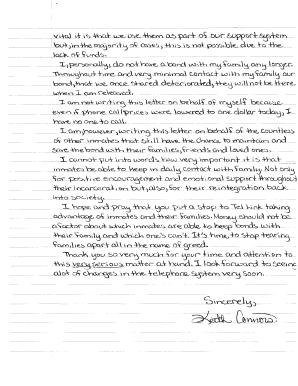 vital it is that we use them as part of our support system
but, in the majority of cases, this is not possible due to the
lack of funds.
I, personally, do not have a bond with my family any longer.
Throughout time and very minimal contact with my family our
bond, that we once shared deteriorated, they will not be there
when I am released.
I am not writing this letter on behalf of myself because
even if phone call prices were lowered to one dollar today, I
have no one to call.
I am, however, writing this letter on behalf of the countless
of other inmates that still have the chance to maintain and
save the bond with their families, friends and loved ones.
I cannot put into words how very important it is that
inmates be able to keep in daily contact with family. Not only
for positive encouragement and emotional support throughout
their incarceration but, also, for their reintegration back
into society.
I hope and pray that you put a stop to Tel link taking
advantage of inmates and their families. Money should not be
a factor about which inmates are able to keep bonds with
their family and which one's can't. It's time, to stop tearing
families apart all in the name of greed.
Thank you so very much for your time and attention to
this very serious matter at hand. I look forward to seeing
alot of changes in the telephone system very soon.
Sincerely,
Keith Connors